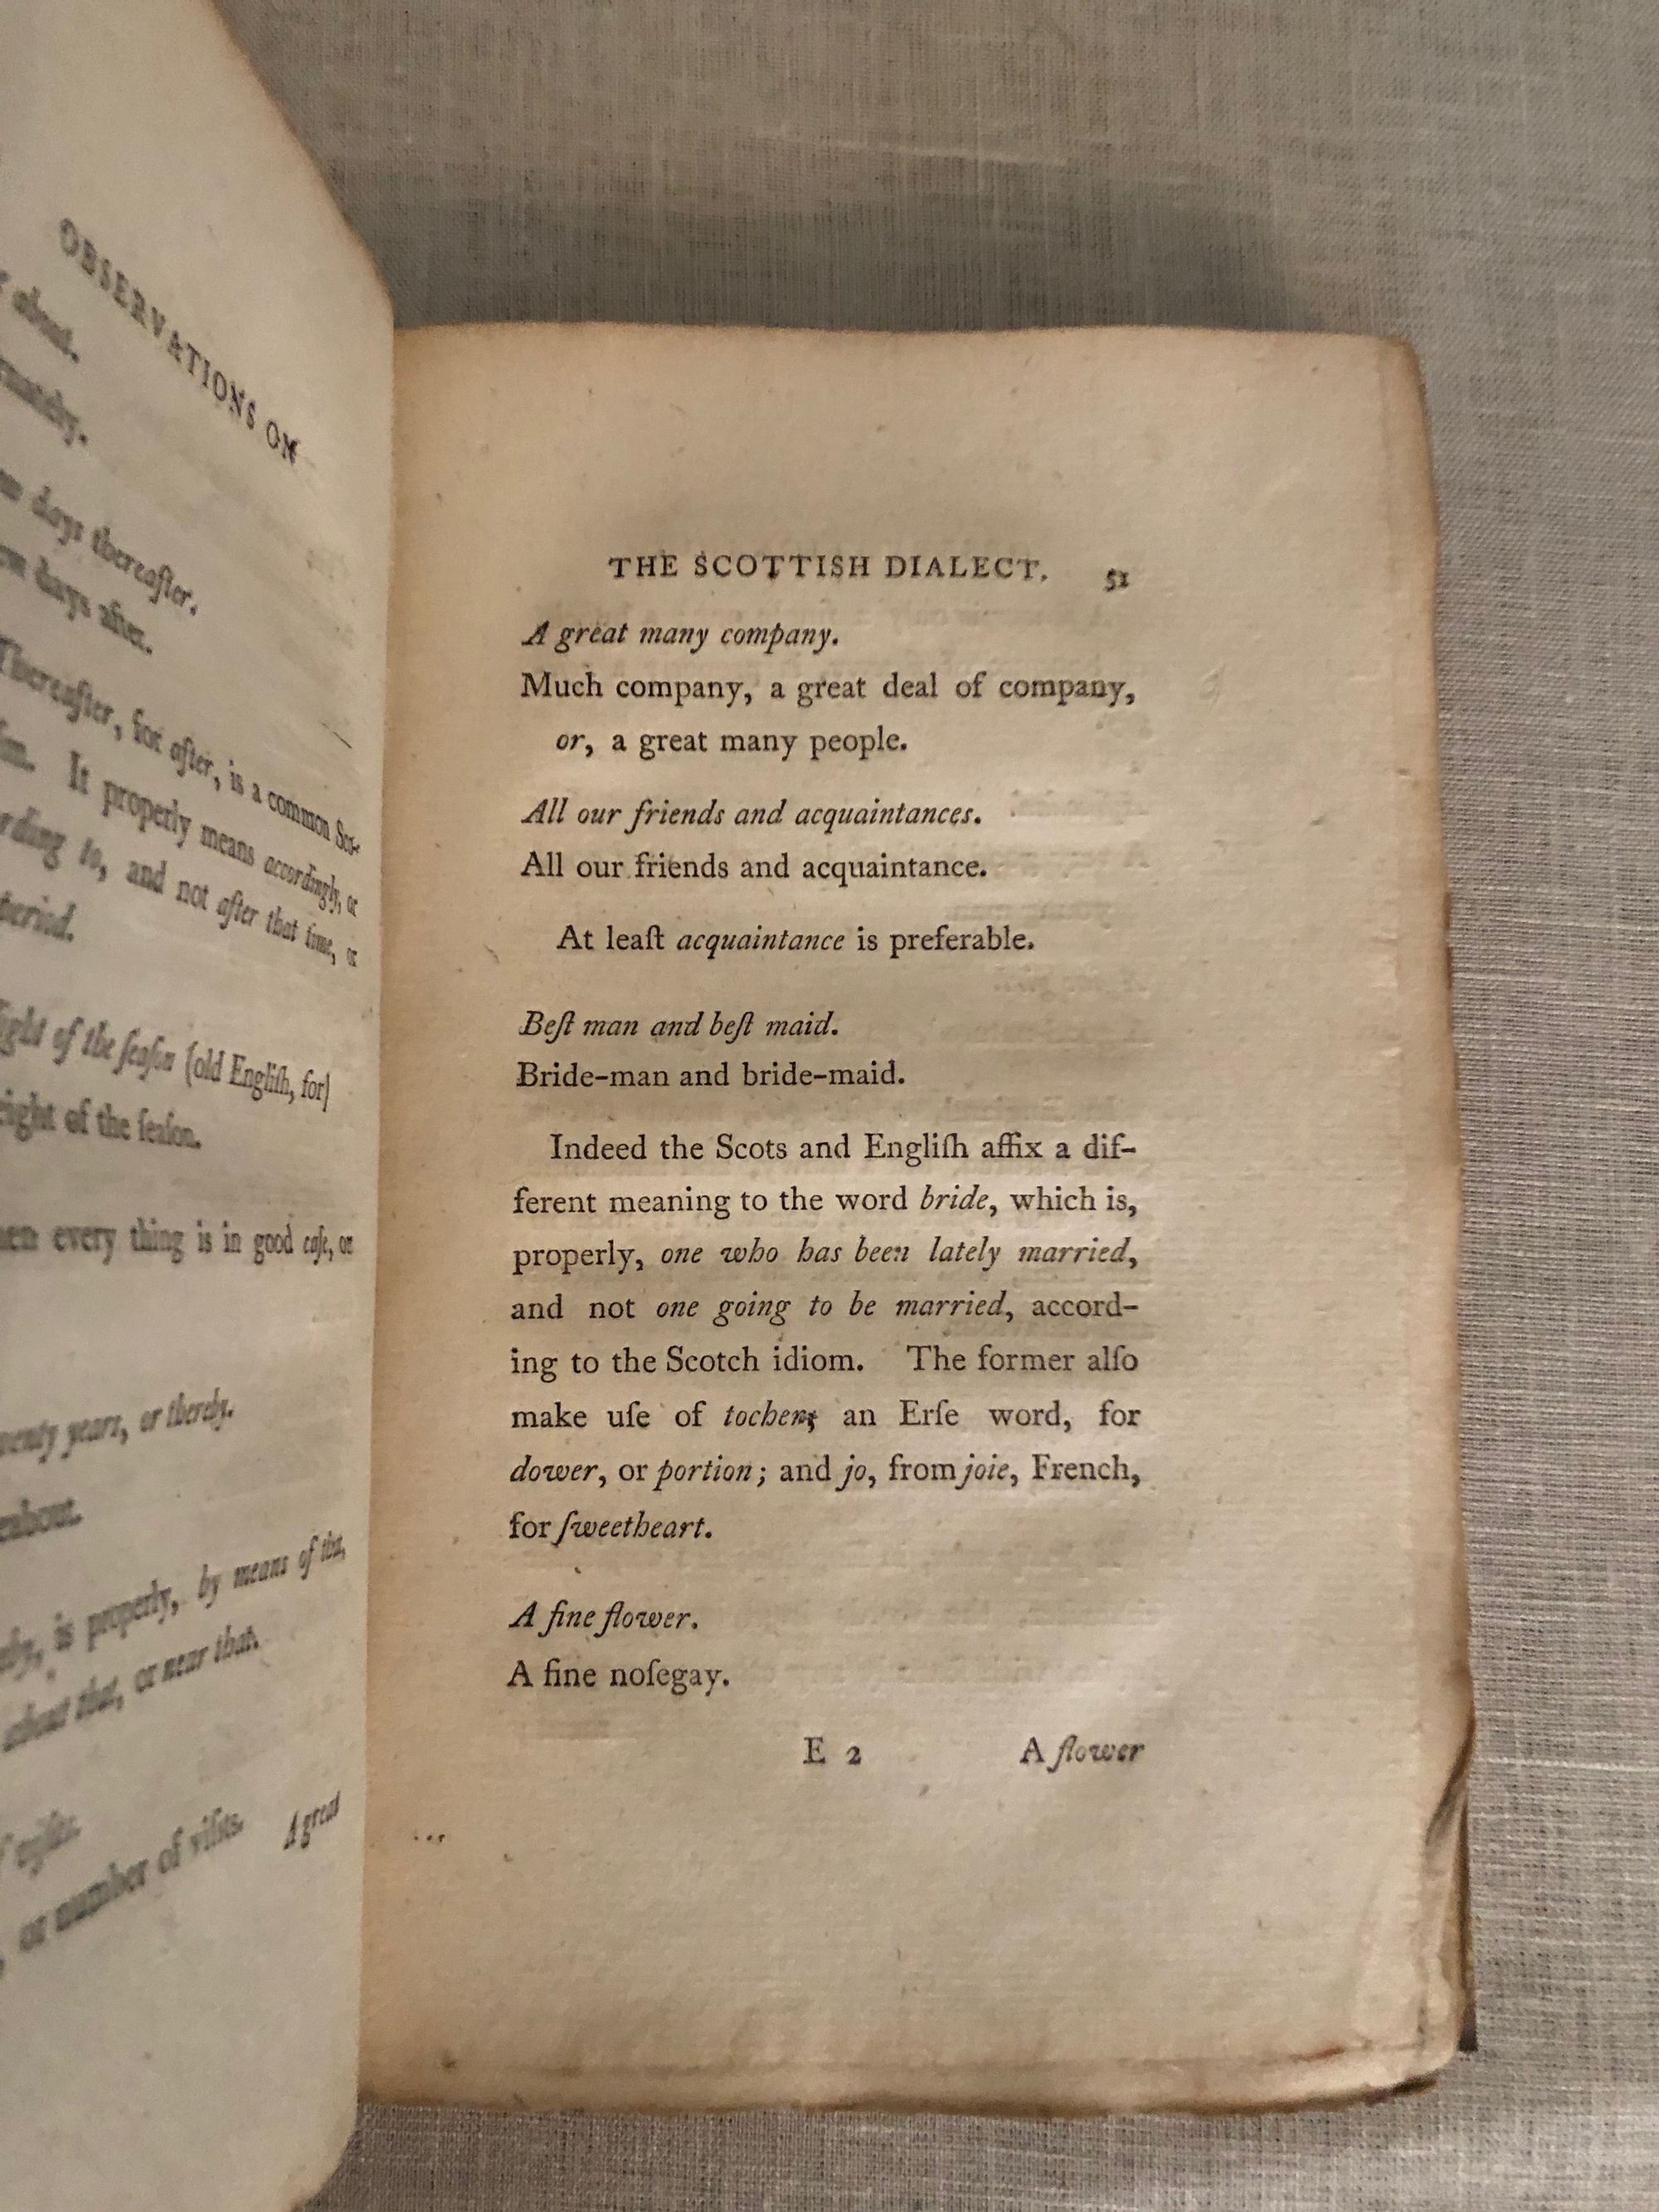 OBSERVATIONS ON
about.
days thereafter.
days after.
Thereafter, for after, is a common Sco-
It properly means accordingly, or
to, and not after that time, or
period.
of the ſeaſon (old Engliſh, for)
of the ſeaſon.
every thing is in good caſe, or
years, or thereby.
is properly, by means of that,
about that, or near that.
or number of viſits.
A great
THE SCOTTISH DIALECT. 51
A great many company.
Much company, a great deal of company,
or, a great many people.
All our friends and acquaintances.
All our friends and acquaintance.
At leaſt acquaintance is preferable.
Beſt man and beſt maid.
Bride-man and bride-maid.
Indeed the Scots and Engliſh affix a dif-
ferent meaning to the word bride, which is,
properly, one who has been lately married,
and not one going to be married, accord-
ing to the Scotch idiom. The former alſo
make uſe of tocher, an Erſe word, for
dower, or portion; and jo, from joie, French,
for ſweetheart.
A fine flower.
A fine noſegay.
E 2 A flower